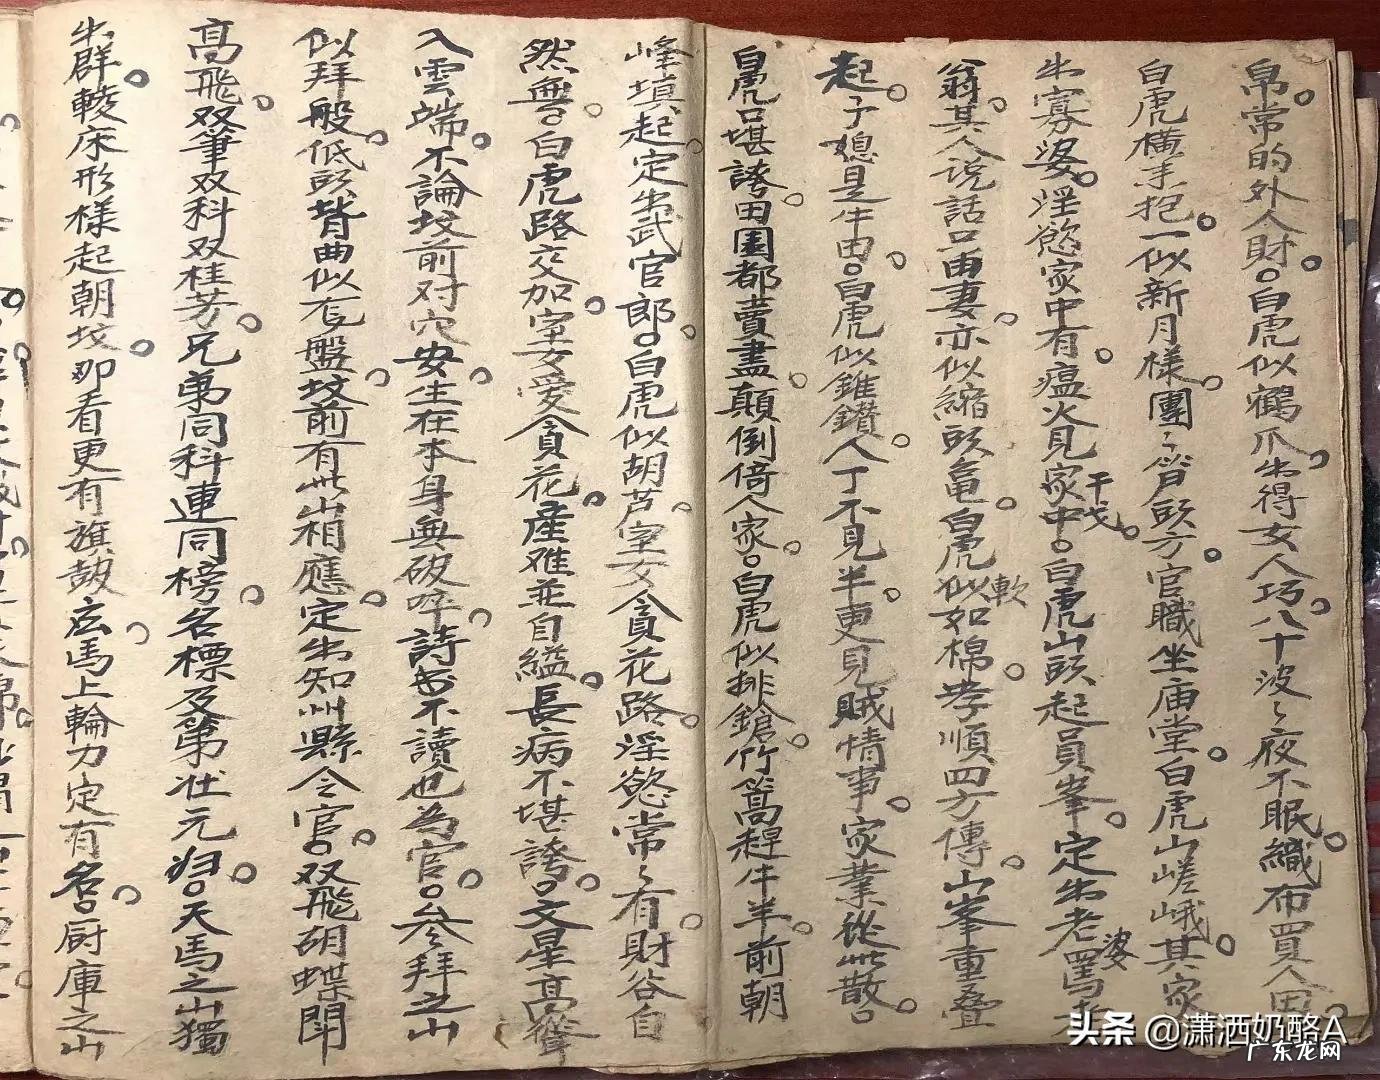 帛。常的外人財。白虎似鶴爪。出得女人巧。八十波〻夜不眠。織布買人田。
白虎橫手抱。一似新月樣。團〻背头方。官職坐庙堂。白虎山嵯峨。其家
出寡婆。淫慾家中有。瘟火見家中。白虎山头起員峯。定出老罵
干戈。
婆
翁。其人说話只由妻。亦似縮头龜。白虎似如棉。孝順四方傳。山峯重叠
軟
起。子媳是牛田。白虎似錐鑽。人丁不見半。更見賊情事。家業從此散。
白虎只堪誇。田園都賣盡。顛倒倚人家。白虎似排鎗。竹篙趕牛羊。前朝
峰填起。定出武官郎。白虎似胡芦。室女貪花路。淫慾常〻有。財谷自
然無。白虎路交加。室女愛貪花。産难並自縊。長病不堪誇。文星高聳
入雲端。不論坟前对穴安。生在本身無破碎。詩书不讀也為官。叅拜之山
似拜般。低头背曲似衣盤。坟前有此山相應。定出知州縣令官。双飛胡蝶鬥
高飛。双筆双科双桂芳。兄弟同科連同榜。名標及第壮元归。天馬之山獨
出群。鞍床形樣起朝坟。那看更有旗鼓応。馬上輪刀定有名。厨庫之山
头条 @潇洒奶酪A
广东龙网